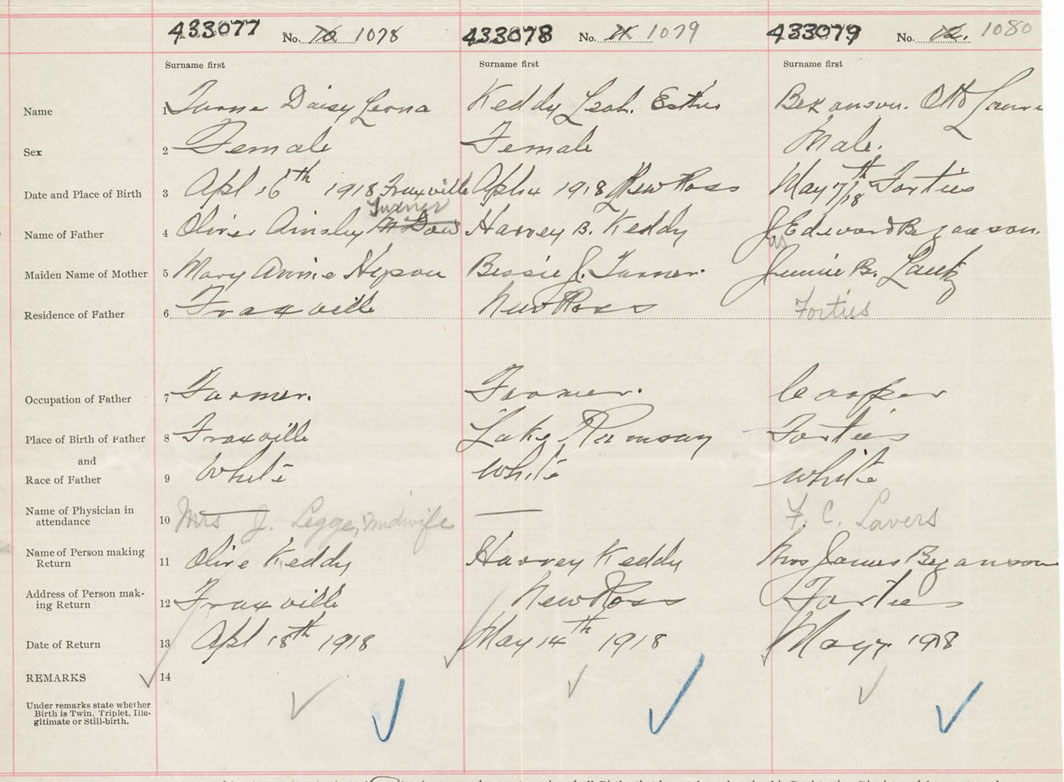 433077 No. 1078 433078 No. 1079 433079 No. 1080
Surname first Surname first Surname first
Name 1 Turner Daisy Leona Keddy, Leah. Esther Bezanson. Otto
Sex 2 Female Female Male.
Date and Place of Birth 3 Apl 16th 1918 Fraxville Apl 14 1918 New Ross May 7th/18 Forties
Turner
Name of Father 4 Oliver Ainsley Harvey B. Keddy Jas Edward Bezanson.
Maiden Name of Mother 5 Mary Annie Hyson Bessie J. Turner. Jennie B. Lantz
Residence of Father 6 Fraxville New Ross Forties
Occupation of Father 7 Farmer. Farmer. Cooper
Place of Birth of Father 8 Fraxville Lake Ramsay Forties
and
Race of Father 9 White White White
Name of Physician in
attendance 10 Mrs J. Legge, midwife — F. C. Lavers
Name of Person making
Return 11 Olive Keddy Harvey Keddy Mrs James Bezanson
Address of Person mak-
ing Return 12 Fraxville New Ross Forties
Date of Return 13 Apl 18th 1918 May 14th 1918 May 7 1918
REMARKS 14
Under remarks state whether
Birth is Twin, Triplet, Ille-
gitimate or Still-birth.